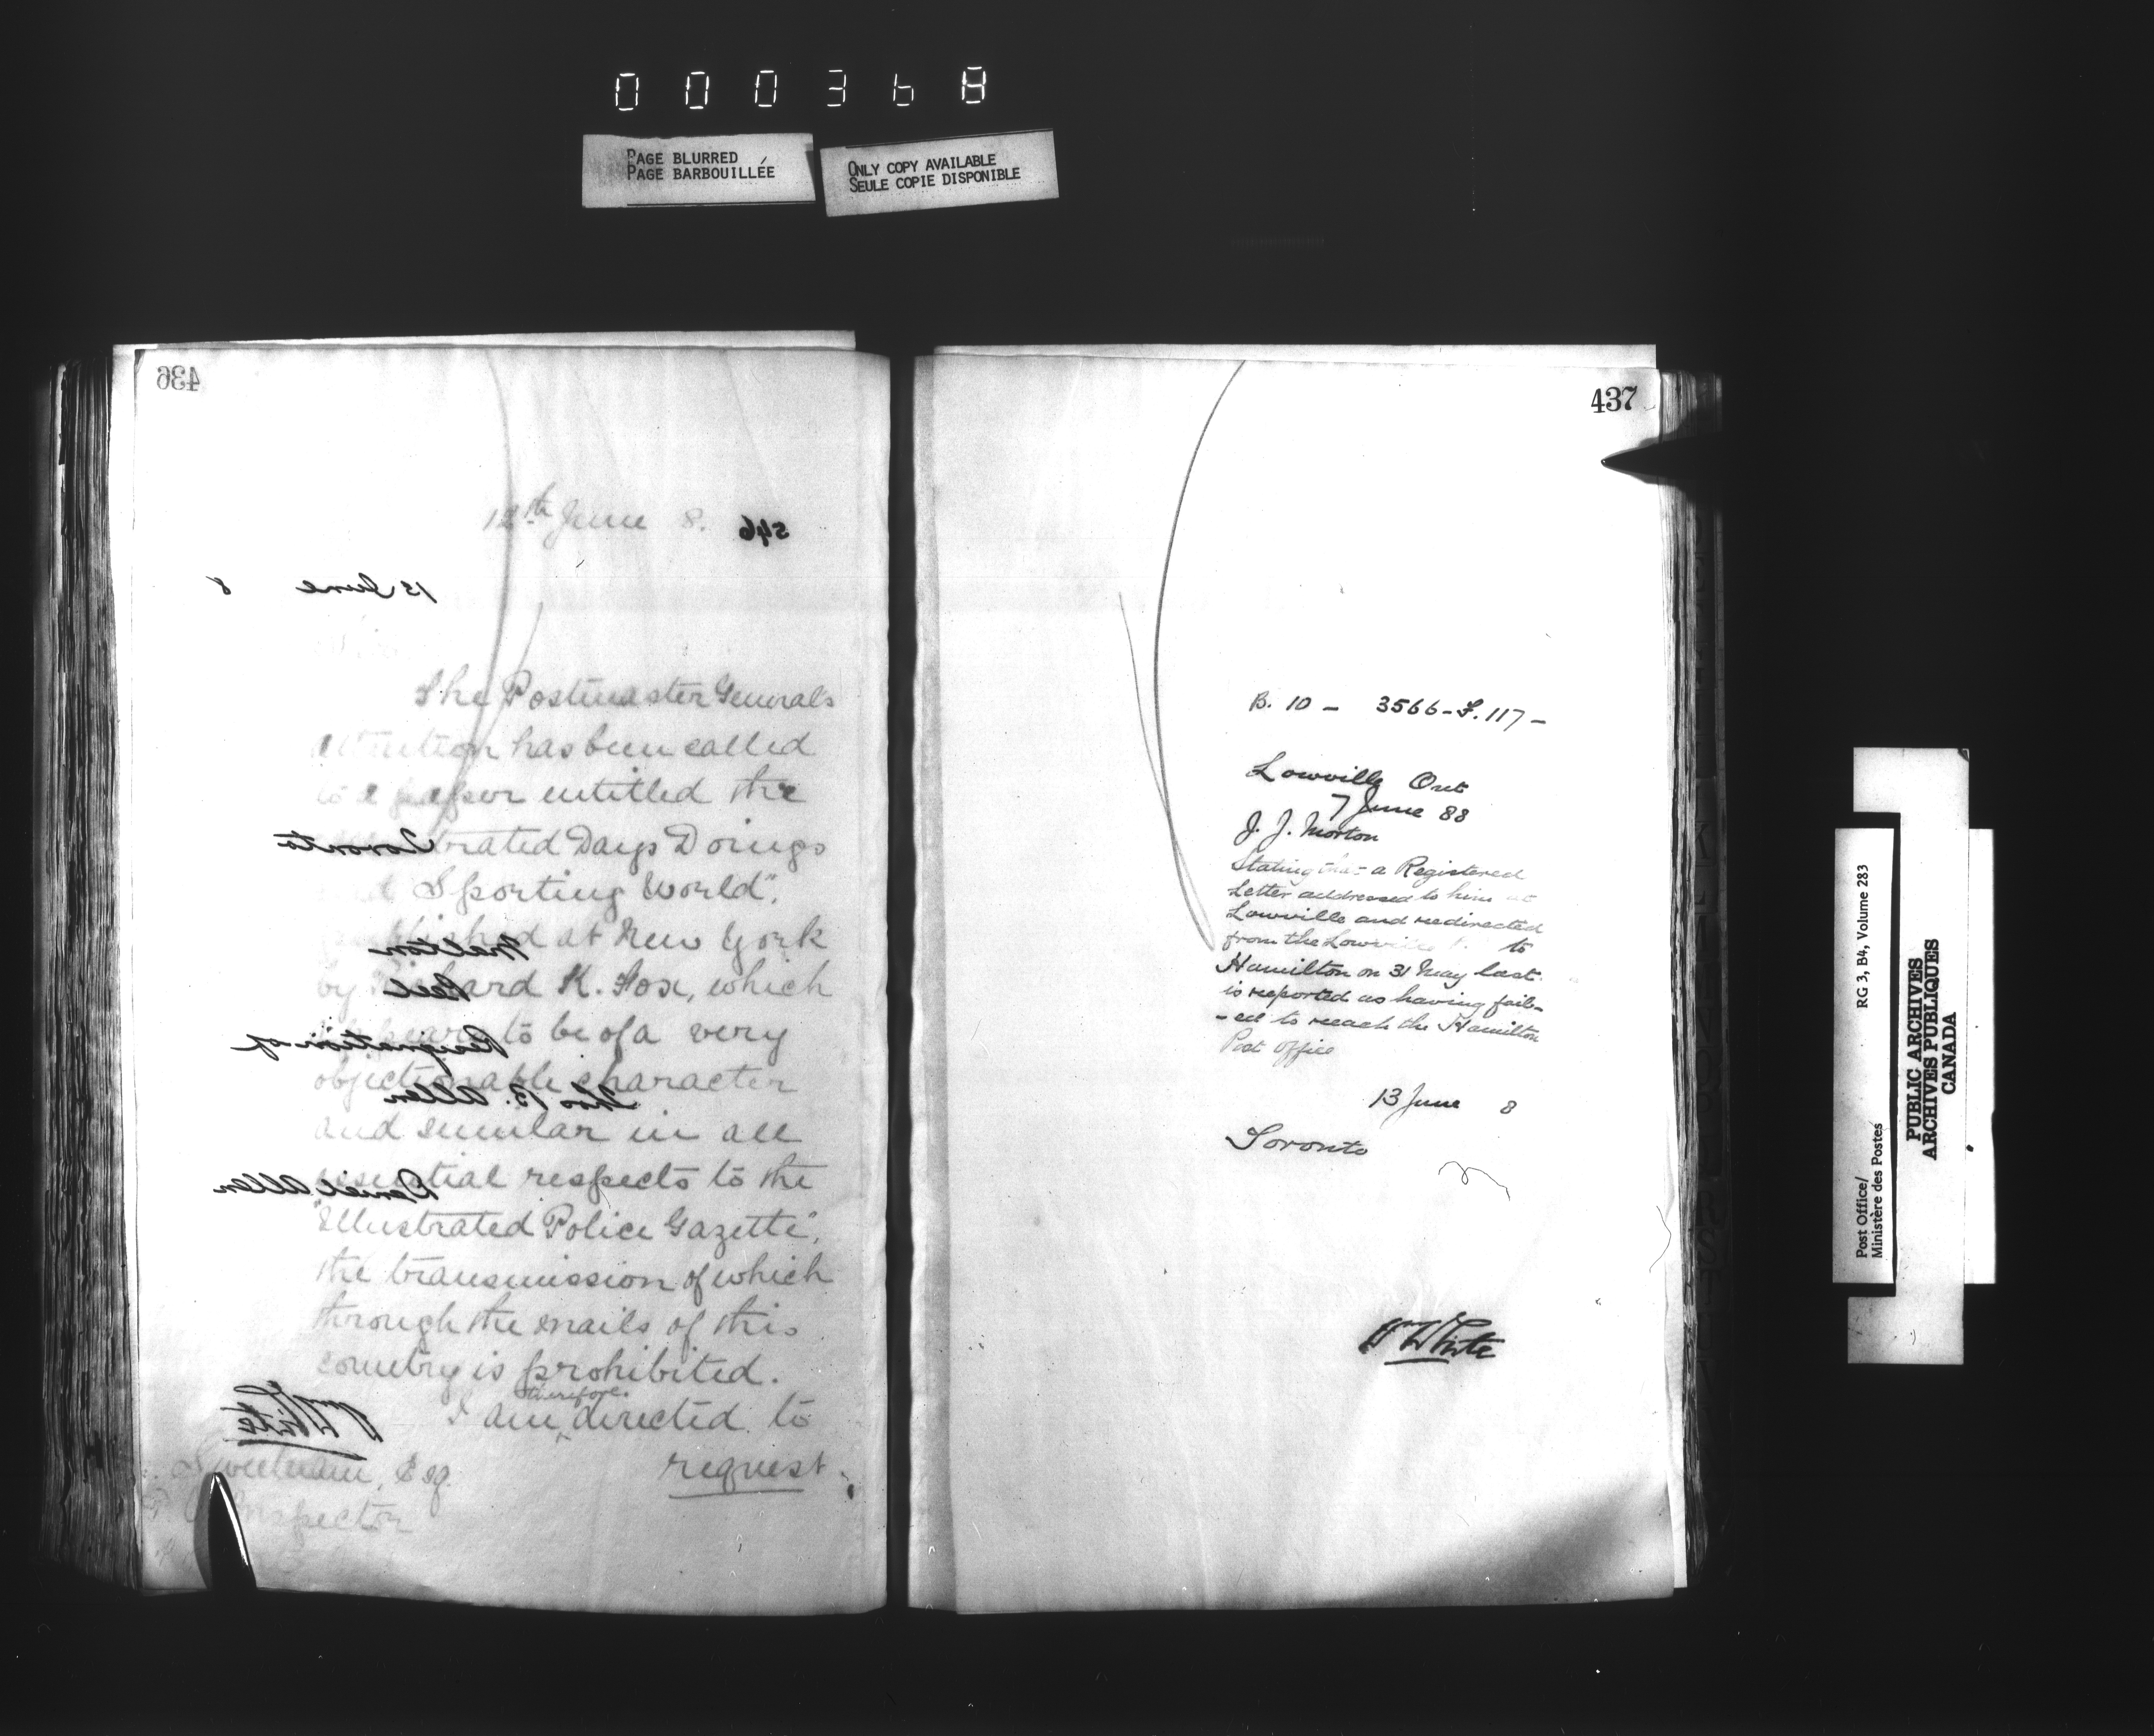 000368
PAGE BLURRED
PAGE BARBOUILLÉE
ONLY COPY AVAILABLE
SEULE COPIE DISPONIBLE
436
12th June 8.
546
13 June 8
The Postmaster Generals
attention has been called
to a paper entitled the
trated Days Doings
Sporting World",
published at New York
by Richard K. Fox, which
appears to be of a very
objectionable character
and similar in all
essential respects to the
"Illustrated Police Gazette",
the transmission of which
through the mails of this
country is prohibited.
I am therefore directed to
request
Sweetnam, Esq.
P. O. Inspector
Toronto
Malton
Peel
Resignation of
Thos B. Allen
Daniel Allen
Wm White
437
B. 10 - 3566-F. 117-
Lowville Ont
7 June 88
J. J. Morton
Stating that a Registered
Letter addressed to him at
Lowville and redirected
from the Lowville to
Hamilton on 31 May last.
is reported as having fail-
-ed to reach the Hamilton
Post Office
13 June 8
Toronto
Wm White
Post Office/
Ministère des Postes
RG 3, B4, Volume 283
PUBLIC ARCHIVES
ARCHIVES PUBLIQUES
CANADA